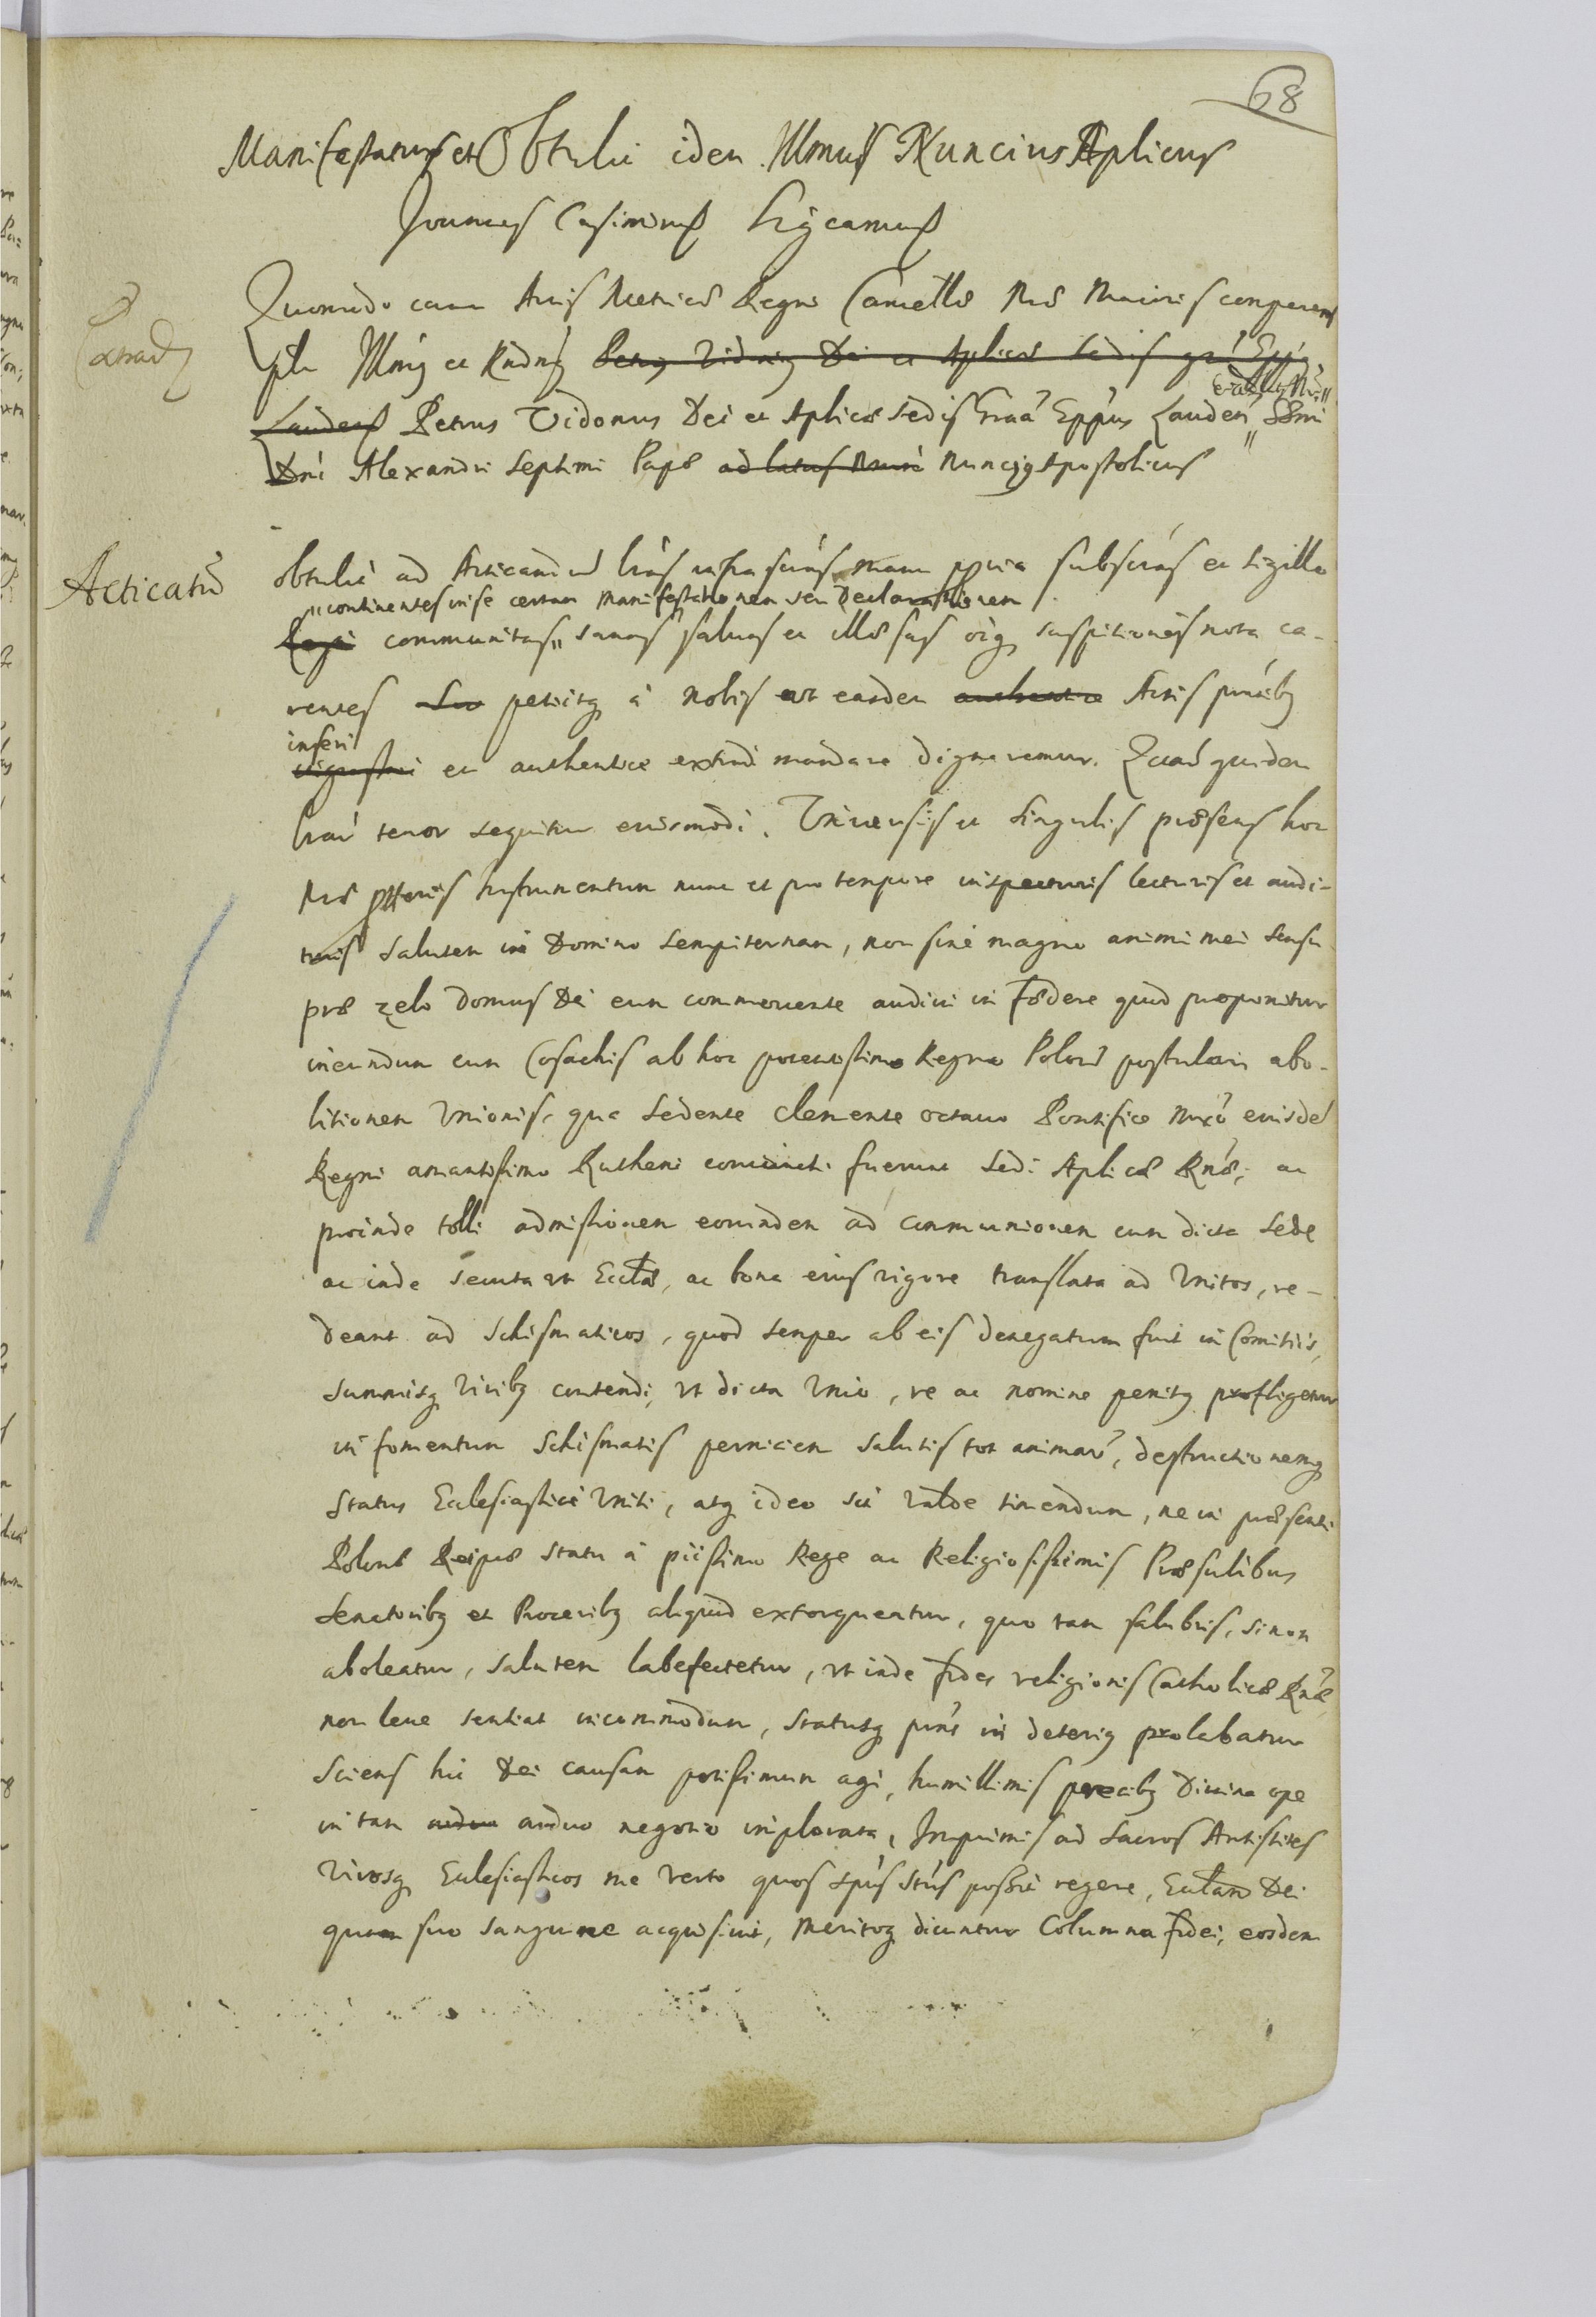 68
Manifestatur et Obtulit idem Illmus Nuncius Aplicus
Joannes Casimirus Significamus
Quomodo coram Actis Metrices Regni Cancellæ Nræ Maioris comparens
Extrad
pler Illmus et Rndmus Petrus Vidonus Dei et Aplicæ Sedis gra Eppus
Laudens Petrus Vidonus Dei et Aplicæ Sedis Graa Eppus Lauden Ssmi
Dni Alexandri Septimi Papæ ad latus Nuncius Apostolicus
Acticatū
obtulit ad Acticandum lras infrascras manu ppria subscras et sigillo
continentes in se certam Manifestationem seu Declarationem
communitas sanas saluas et illæsas oiq suspitionis nota ca-
rentes petiitq à nobis ut easdem authentice Actis pntibq
inseri
et authentice extradi mandare dignaremur. Quarū quidem
lrarū tenor sequitur eiusmodi. Vniuersis et Singulis præsens hoc
Instrumentum nunc et pro tempore inspecturis lecturis et audi-
turis Salutem in Domino Sempiternam, non sine magno animi mei sensu
præ zelo Domus Dei eum commouente audiui in fœdere quod proponitur
ineundum cum Cosachis ab hoc potentissimo Regno Polonō postulari abo-
litionem Vnionis, qua Sedente Clemente octauo Pontifice Mxō eiusdē
Regni amantissimo Rutheni conuincti fuerunt Sedi Aplicæ Rnæ, ac
proinde tolli admissionem eorundem ad communionem cum dicta Sede
ac inde secuta ut Ecclæ, ac bona eius vigore translata ad Vnitos, re-
deant ad Schismaticos, quod semper ab eis denegatum fuit in Comitiis,
summisq Viribq contendi, ut dicta Vnio, re ac nomine penitq profligetur
in fomentum Schismatis perniciem Salutis tot animarū, destructionemq
Status Eclesiastici Vniti, atq ideo sit Valde timendum, ne in præsenti
Polonæ Reipcæ statu à piissimo Rege ac Religiosissimis Præsulibus
Senatoribq et Proceribq aliquid extorqueatur, quo tam salubris, si non
aboleatur, saltem labefectetur, ut inde fides religionis Catholicæ Rnæ
non leue sentiat incommodum, Statusq pnś in deteriq prolabatur
Sciens hic Dei causam potissimum agi, humillimis precibq Diuina ope
in tam arduo negotio implorata, Imprimis ad Sacros Antistites
Virosq Eclesiasticos me verto quos Spús Stús posuit regere, Ecclam Dei
quam suo sanguine acquisiuit, Meritoq dicuntur Columna fidei, eosdem